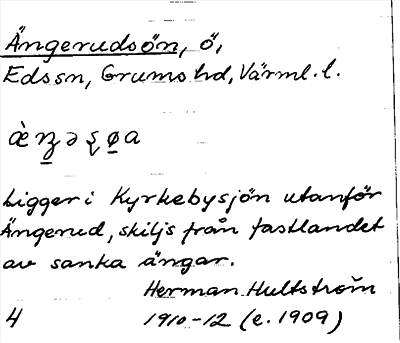 Ängerudsön, ö,
Eds sn, Grums hd, Värml. l.
Ligger i Kyrkebysjön utanför
Ängerud, skiljs från fastlandet
av sanka ängar.
Herman Hultström
4 1910-12 (e. 1909)